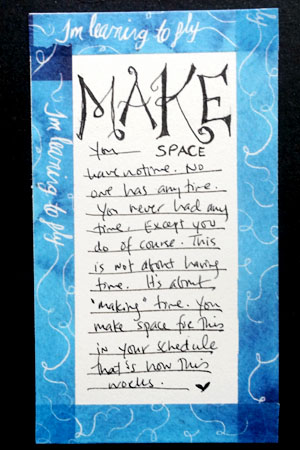 I'm learning to fly
I'm learning to fly
MAKE
You SPACE
have no time. No
one has any time.
You never had any
time. Except you
do of course. This
is not about having
time. It's about
"making" time. You
make space for this
in your schedule
that's how this
works.